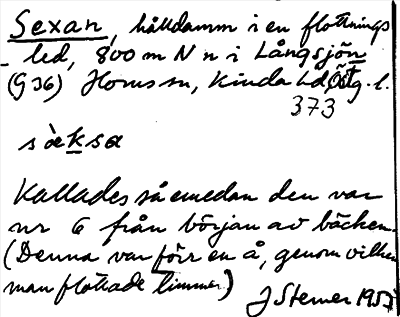 Sexan, hålldamm i en flottnings
led, 800 m N n i Långsjön
(G 36) Horns sn, Kinda hd, Östg. l.
373
sὲksa
Kallades så emedan den var
nr 6 från början av bäcken.
(Denna var förr en å, genom vilken
man flottade timmer) J Sterner 1957